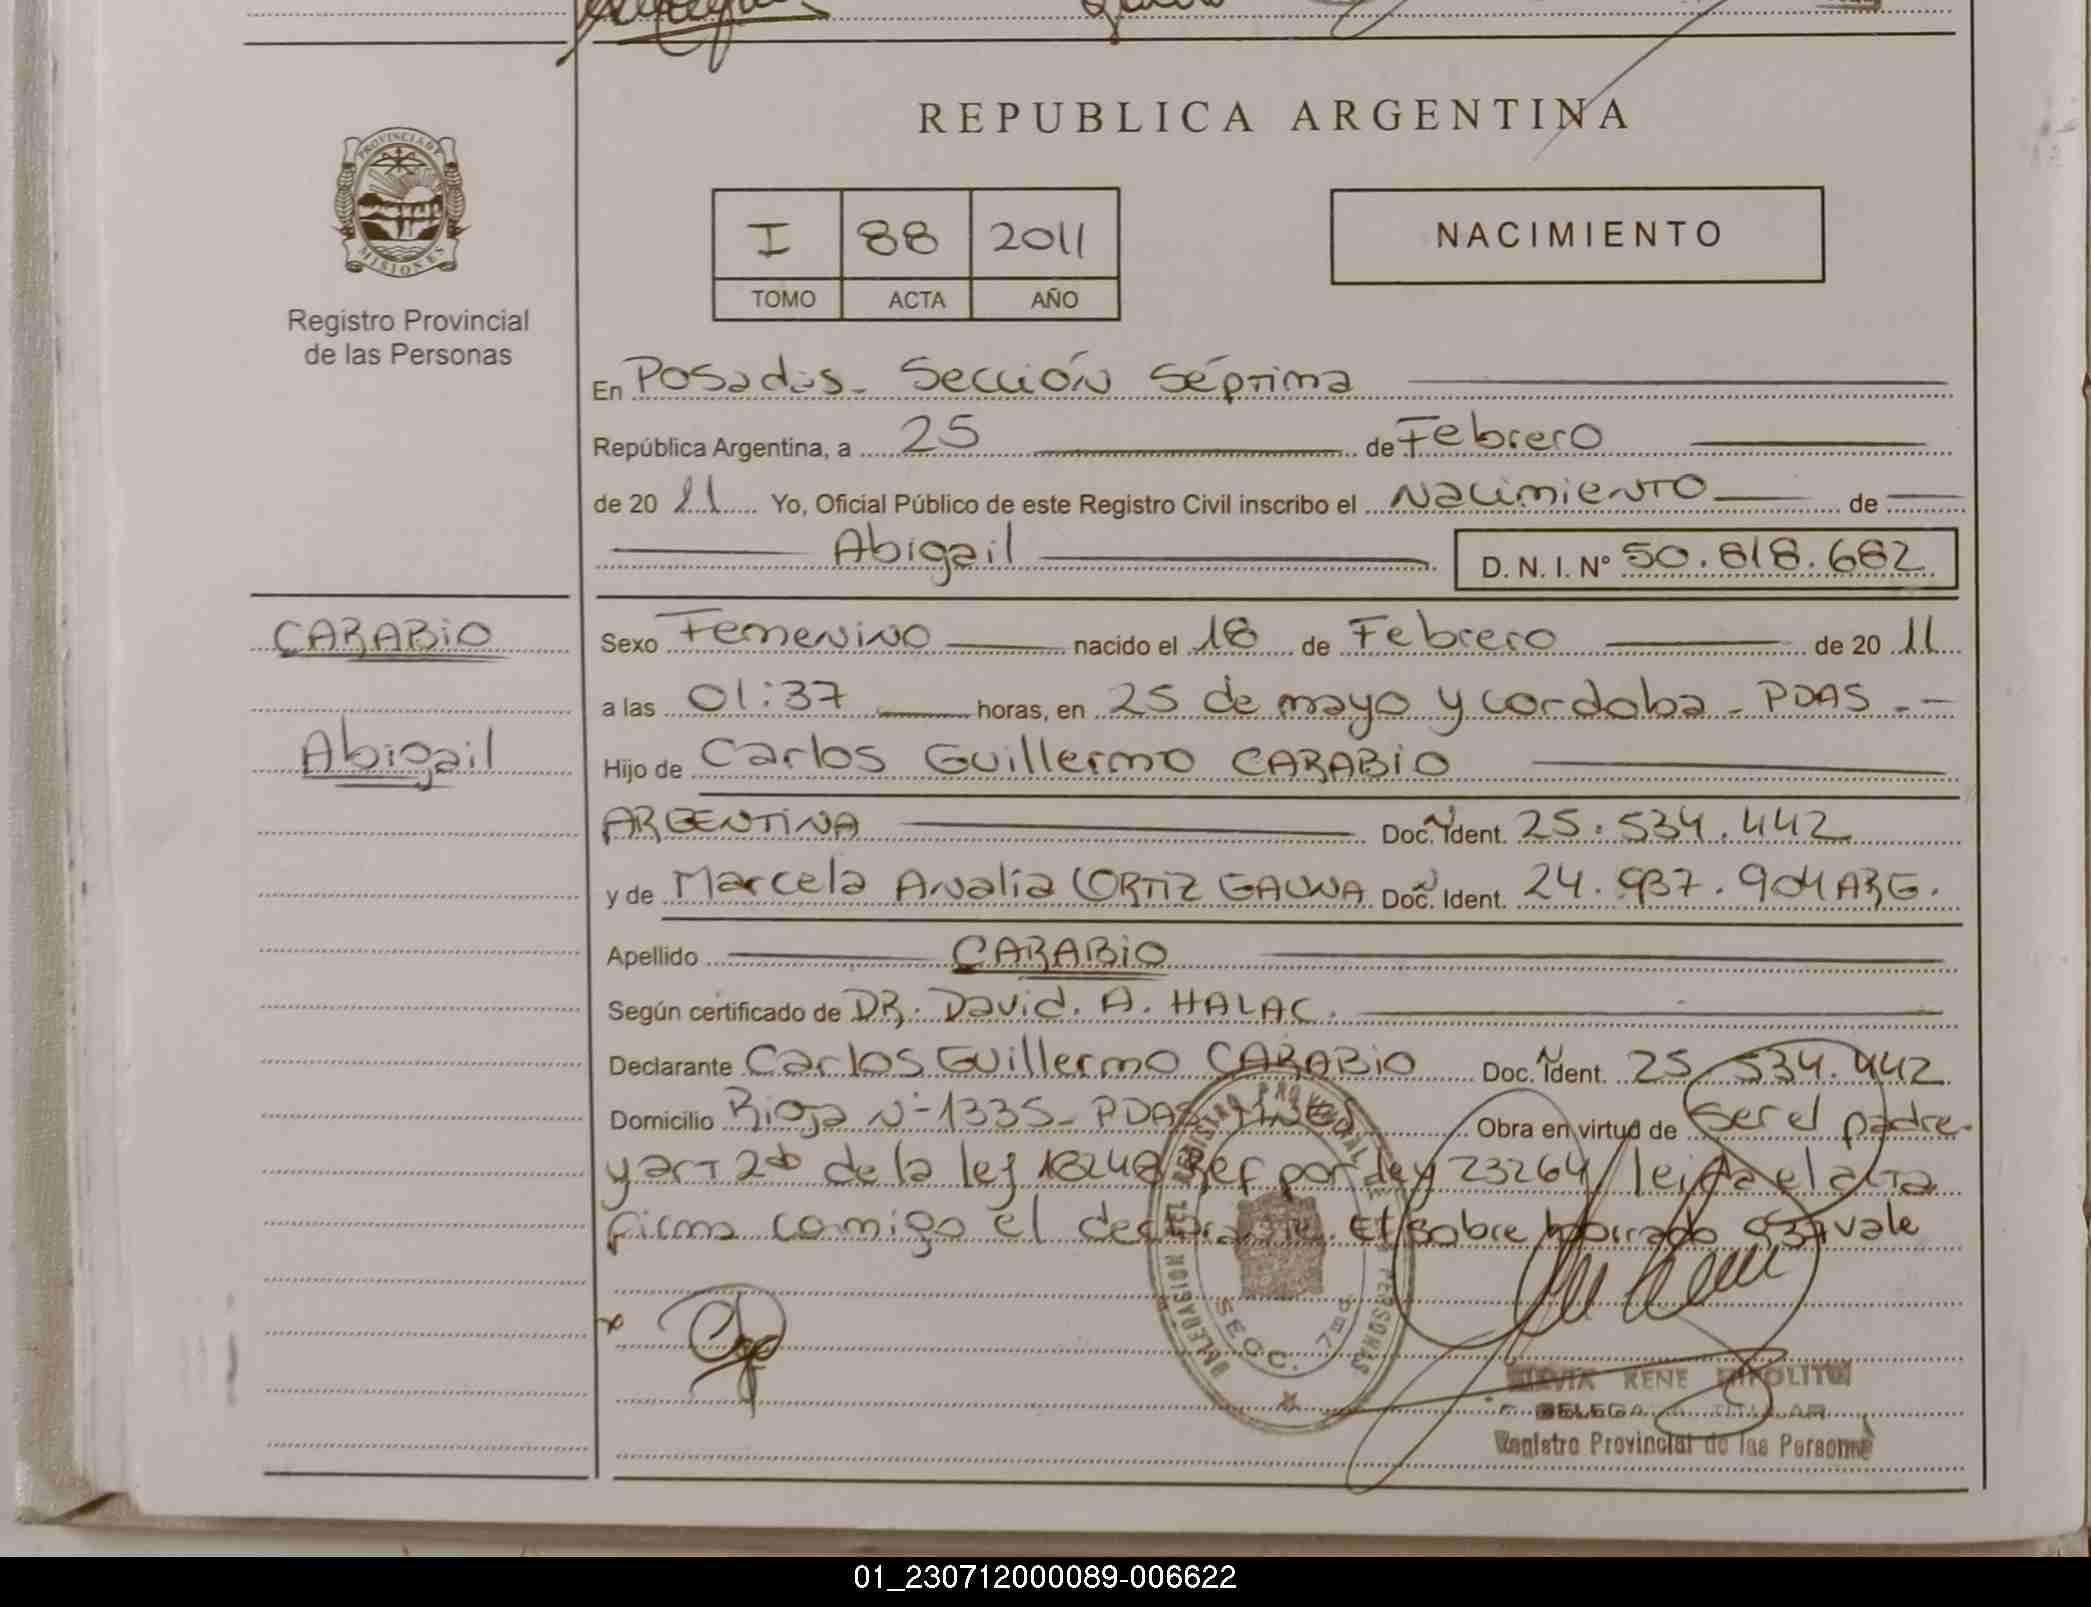 REPUBLICA ARGENTINA
PROVINCIA DE
MISIONES
Registro Provincial
de las Personas
I 88 2011
TOMO ACTA AÑO
NACIMIENTO
En Posadas - Sección Séptima
República Argentina, a 25 de Febrero
de 20 11 Yo, Oficial Público de este Registro Civil inscribo el Nacimiento de
Abigail D. N. I. Nº 50.818.682
CARABIO
Abigail
Sexo Femenino nacido el 18 de Febrero de 20 11
a las 01:37 horas, en 25 de mayo y cordoba - PDAS - -
Hijo de Carlos Guillermo CARABIO
ARGENTINA Doc. Ident. 25.534.442
y de Marcela Analía ORTIZ GAUNA Doc. Ident. 24.937.904 ARG.
Apellido CARABIO
Según certificado de DR. David. A. HALAC.
Declarante Carlos Guillermo CARABIO Doc. Ident. 25 534.442
Domicilio Rioja Nº 1335 - PDAS Obra en virtud de ser el padre-
y art 2do de la ley 18248 Ref por ley 23264 leida el acta
firma comigo el declarante. El sobre borrado 937 vale
SECC. 7ma
RENE
Registro Provincial de las Personas
01_230712000089-006622